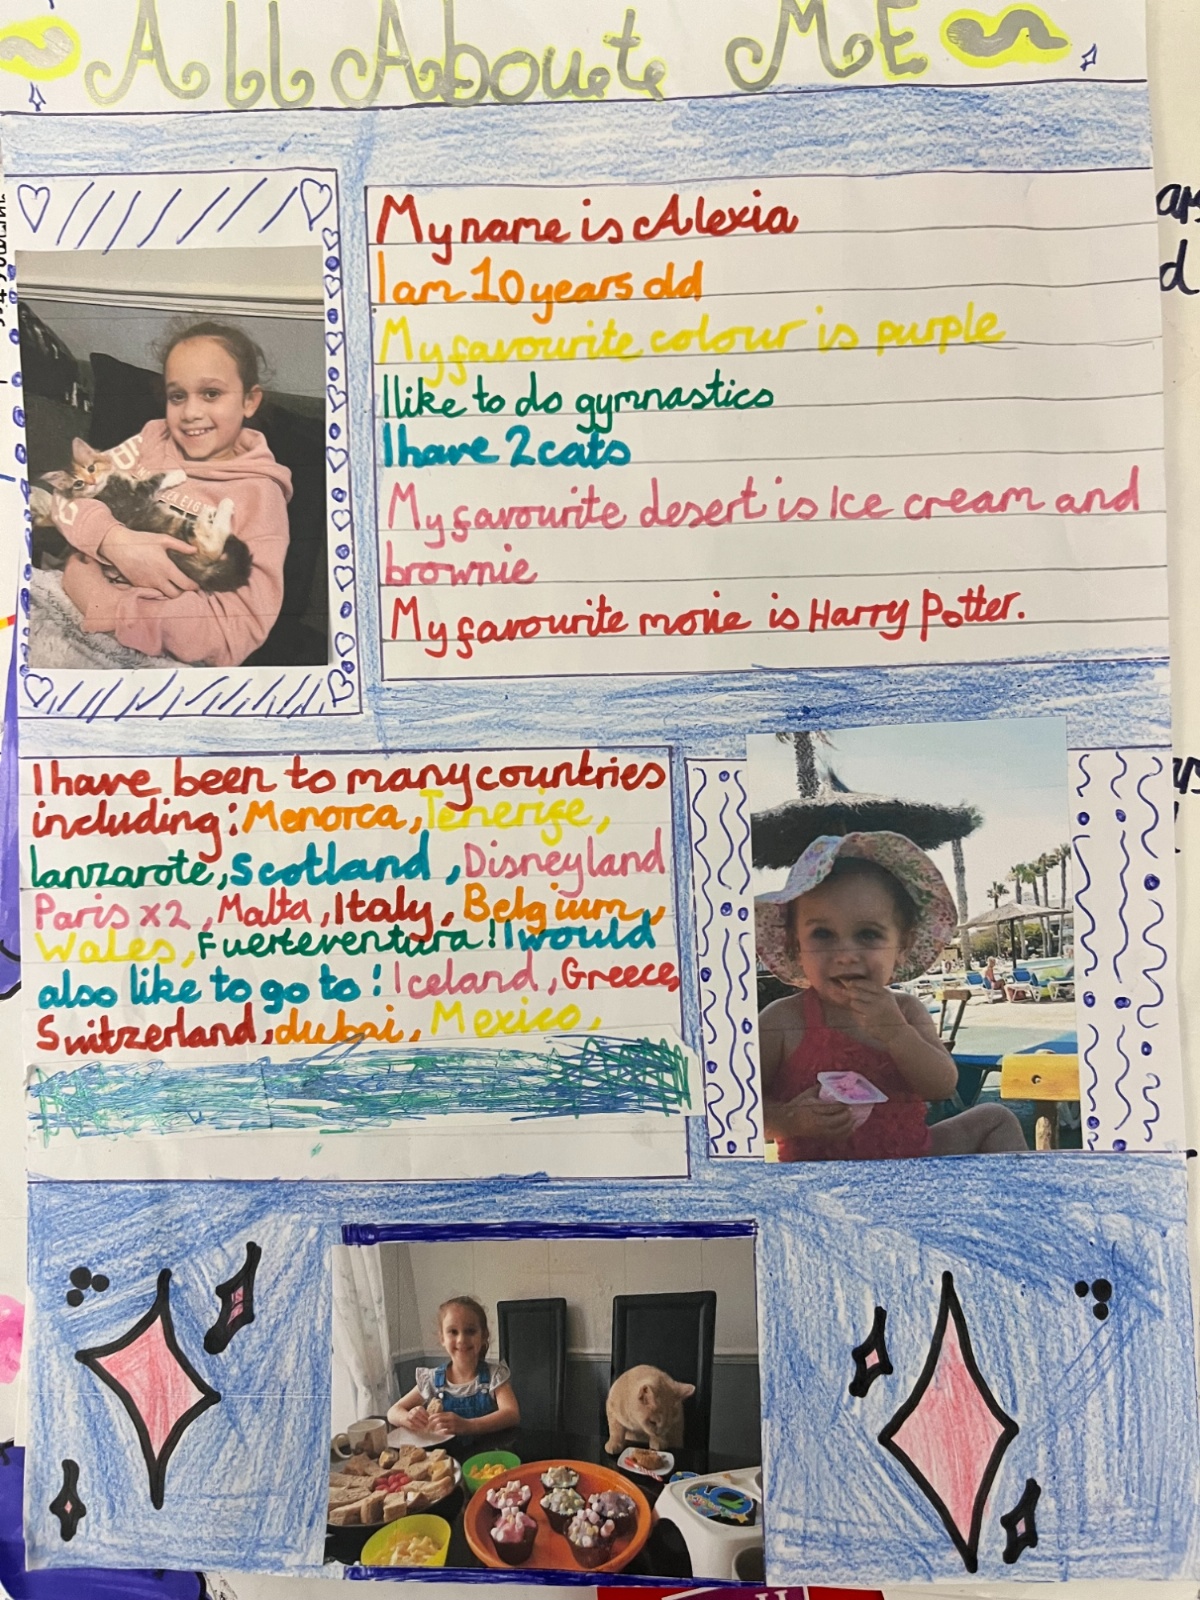 All Aboute ME
My name is Alexia
I am 10 years old
My favourite colour is purple
I like to do gymnastics
I have 2 cats
My favourite desert is Ice cream and
brownie
My favourite movie is Harry Potter.
I have been to many countries
including: Menorca, Tenerife,
lanzarote, Scotland, Disneyland
Paris x2, Malta, Italy, Belgium,
Wales, Fuerteventura! I would
also like to go to! Iceland, Greece,
Switzerland, dubai, Mexico,